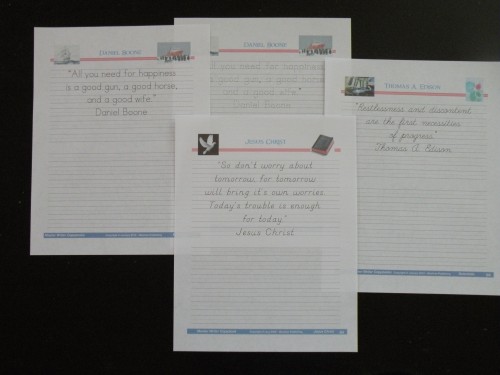 DANIEL BOONE
"All you need for happiness
is a good gun, a good horse,
and a good wife."
Daniel Boone
DANIEL BOONE
THOMAS A. EDISON
"Restlessness and discontent
are the first necessities
of progress."
Thomas A. Edison
JESUS CHRIST
"So don't worry about
tomorrow, for tomorrow
will bring it's own worries.
Today's trouble is enough
for today."
Jesus Christ